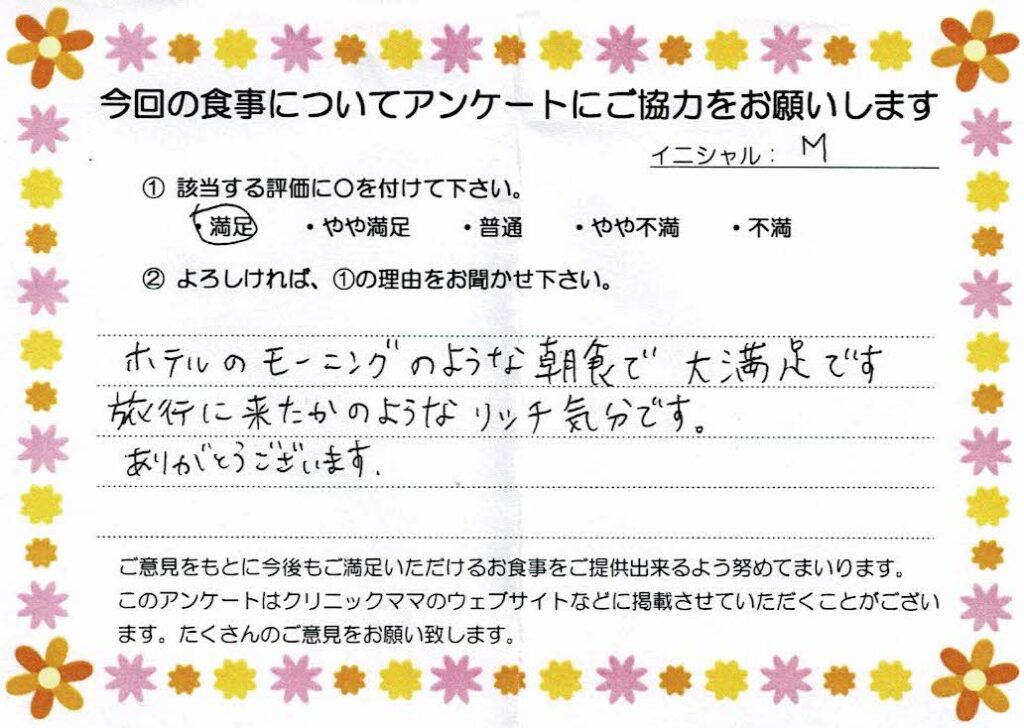 今回の食事についてアンケートにご協力をお願いします
イニシャル： M
① 該当する評価に〇を付けて下さい。
・満足 ・やや満足 ・普通 ・やや不満 ・不満
② よろしければ、①の理由をお聞かせ下さい。
ホテルのモーニングのような朝食で 大満足です
旅行に来たかのようなリッチ気分です。
ありがとうございます.
ご意見をもとに今後もご満足いただけるお食事をご提供出来るよう努めてまいります。
このアンケートはクリニックママのウェブサイトなどに掲載させていただくことがござい
ます。たくさんのご意見をお願い致します。